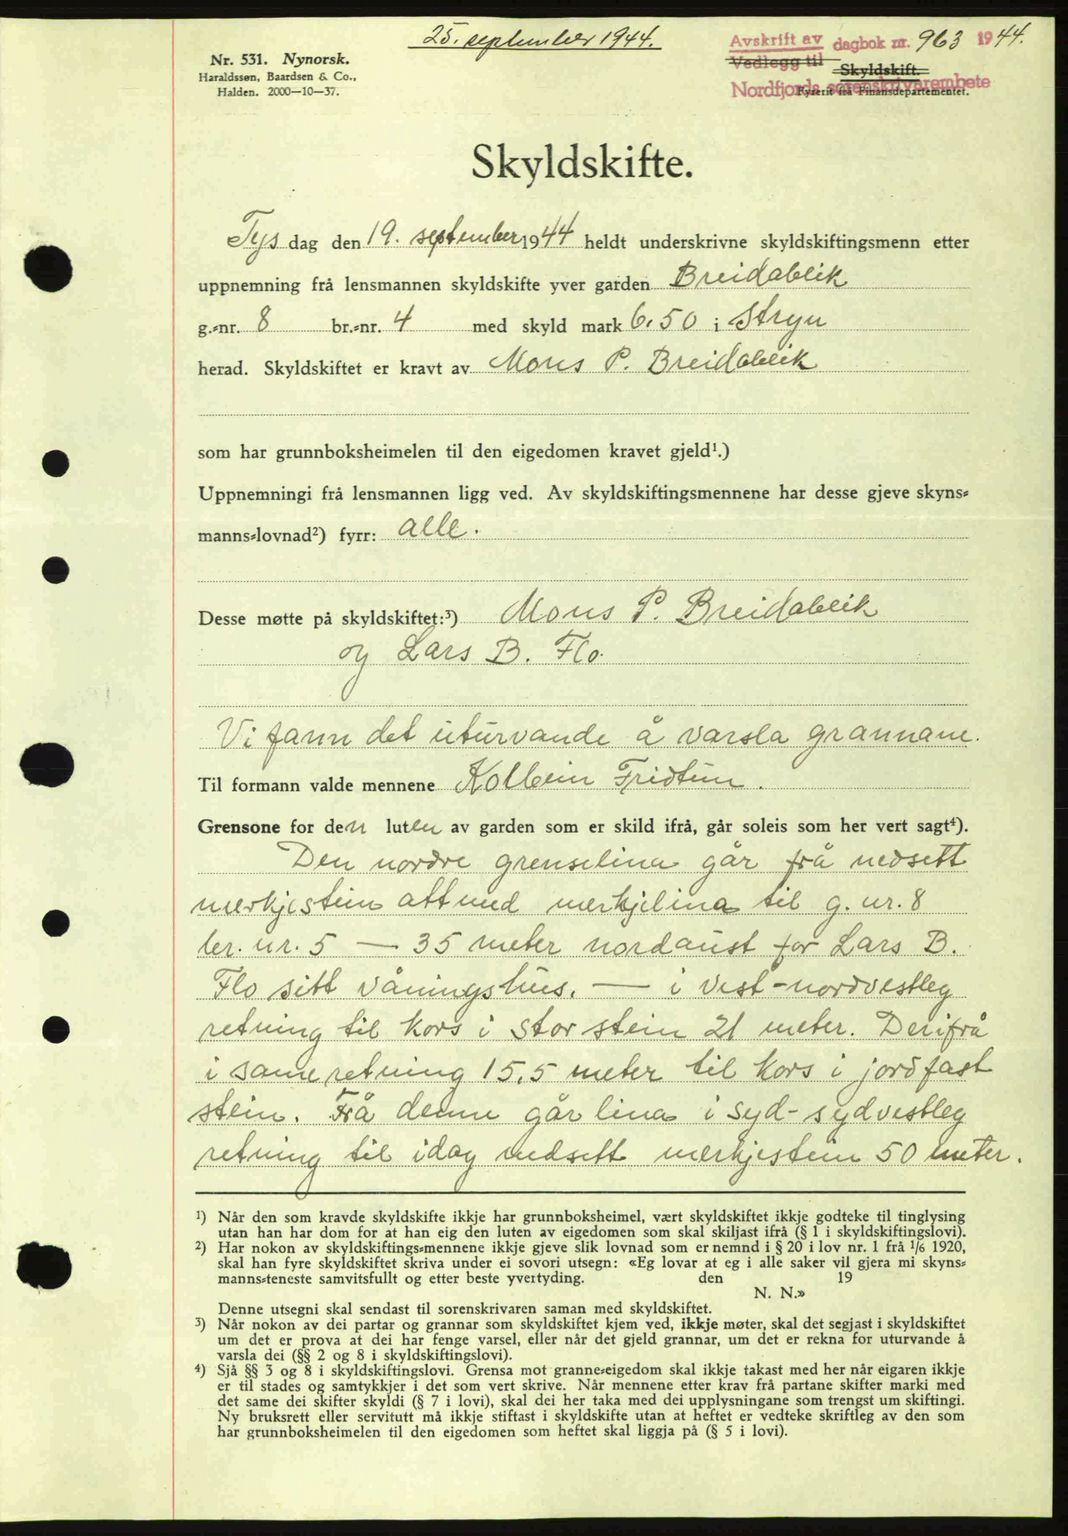 25. september 1944.
Avskrift av dagbok nr. 963 1944.
Vedlegg til
Skyldskift.
Nordfjords sorenskrivarembete
Fyreskrift frå Finansdepartementet.
Nr. 531. Nynorsk.
Haraldssøn, Baardsen & Co.,
Halden. 2000—10—37.
Skyldskifte.
Tysdag den 19. september 1944 heldt underskrivne skyldskiftingsmenn etter
uppnemning frå lensmannen skyldskifte yver garden Breidablik
g.-nr. 8 br.-nr. 4 med skyld mark 6.50 i Stryn
herad. Skyldskiftet er kravt av Mons P. Breidablik
som har grunnboksheimelen til den eigedomen kravet gjeld¹.)
Uppnemningi frå lensmannen ligg ved. Av skyldskiftingsmennene har desse gjeve skyns-
manns-lovnad²) fyrr: alle.
Desse møtte på skyldskiftet:³) Mons P. Breidablik
og Lars B. Flo.
Vi fann det uturvande å varsla grannane.
Til formann valde mennene Kolbein Fridtun.
Grensone for den luten av garden som er skild ifrå, går soleis som her vert sagt⁴).
Den nordre grenselina går frå nedsett
merkjestein attmed merkjelina til g. nr. 8
br. nr. 5 — 35 meter nordaust for Lars B.
Flo sitt våningshus, — i vest-nordvestleg
retning til kors i stor stein 21 meter. Derifrå
i same retning 15,5 meter til kors i jordfast
stein. Frå denne går lina i syd-sydvestleg
retning til idag nedsett merkjestein 50 meter.
¹) Når den som kravde skyldskifte ikkje har grunnboksheimel, vært skyldskiftet ikkje godteke til tinglysing
utan han har dom for at han eig den luten av eigedomen som skal skiljast ifrå (§ 1 i skyldskiftingslovi).
²) Har nokon av skyldskiftings-mennene ikkje gjeve slik lovnad som er nemnd i § 20 i lov nr. 1 frå 1/6 1920,
skal han fyre skyldskiftet skriva under ei sovori utsegn: «Eg lovar at eg i alle saker vil gjera mi skyns-
manns-teneste samvitsfullt og etter beste yvertyding. den 19
N. N.»
Denne utsegni skal sendast til sorenskrivaren saman med skyldskiftet.
³) Når nokon av dei partar og grannar som skyldskiftet kjem ved, ikkje møter, skal det segjast i skyldskiftet
um det er prova at dei har fenge varsel, eller når det gjeld grannar, um det er rekna for uturvande å
varsla dei (§§ 2 og 8 i skyldskiftingslovi).
⁴) Sjå §§ 3 og 8 i skyldskiftingslovi. Grensa mot granne-eigedom skal ikkje takast med her når eigaren ikkje
er til stades og samtykkjer i det som vert skrive. Når mennene etter krav frå partane skifter marki med
det same dei skifter skyldi (§ 7 i lovi), skal dei her taka med dei upplysningane som trengst um skiftingi.
Ny bruksrett eller servitutt må ikkje stiftast i skyldskifte utan at heftet er vedteke skriftleg av den som
har grunnboksheimelen til den eigedomen som heftet skal liggja på (§ 5 i lovi).